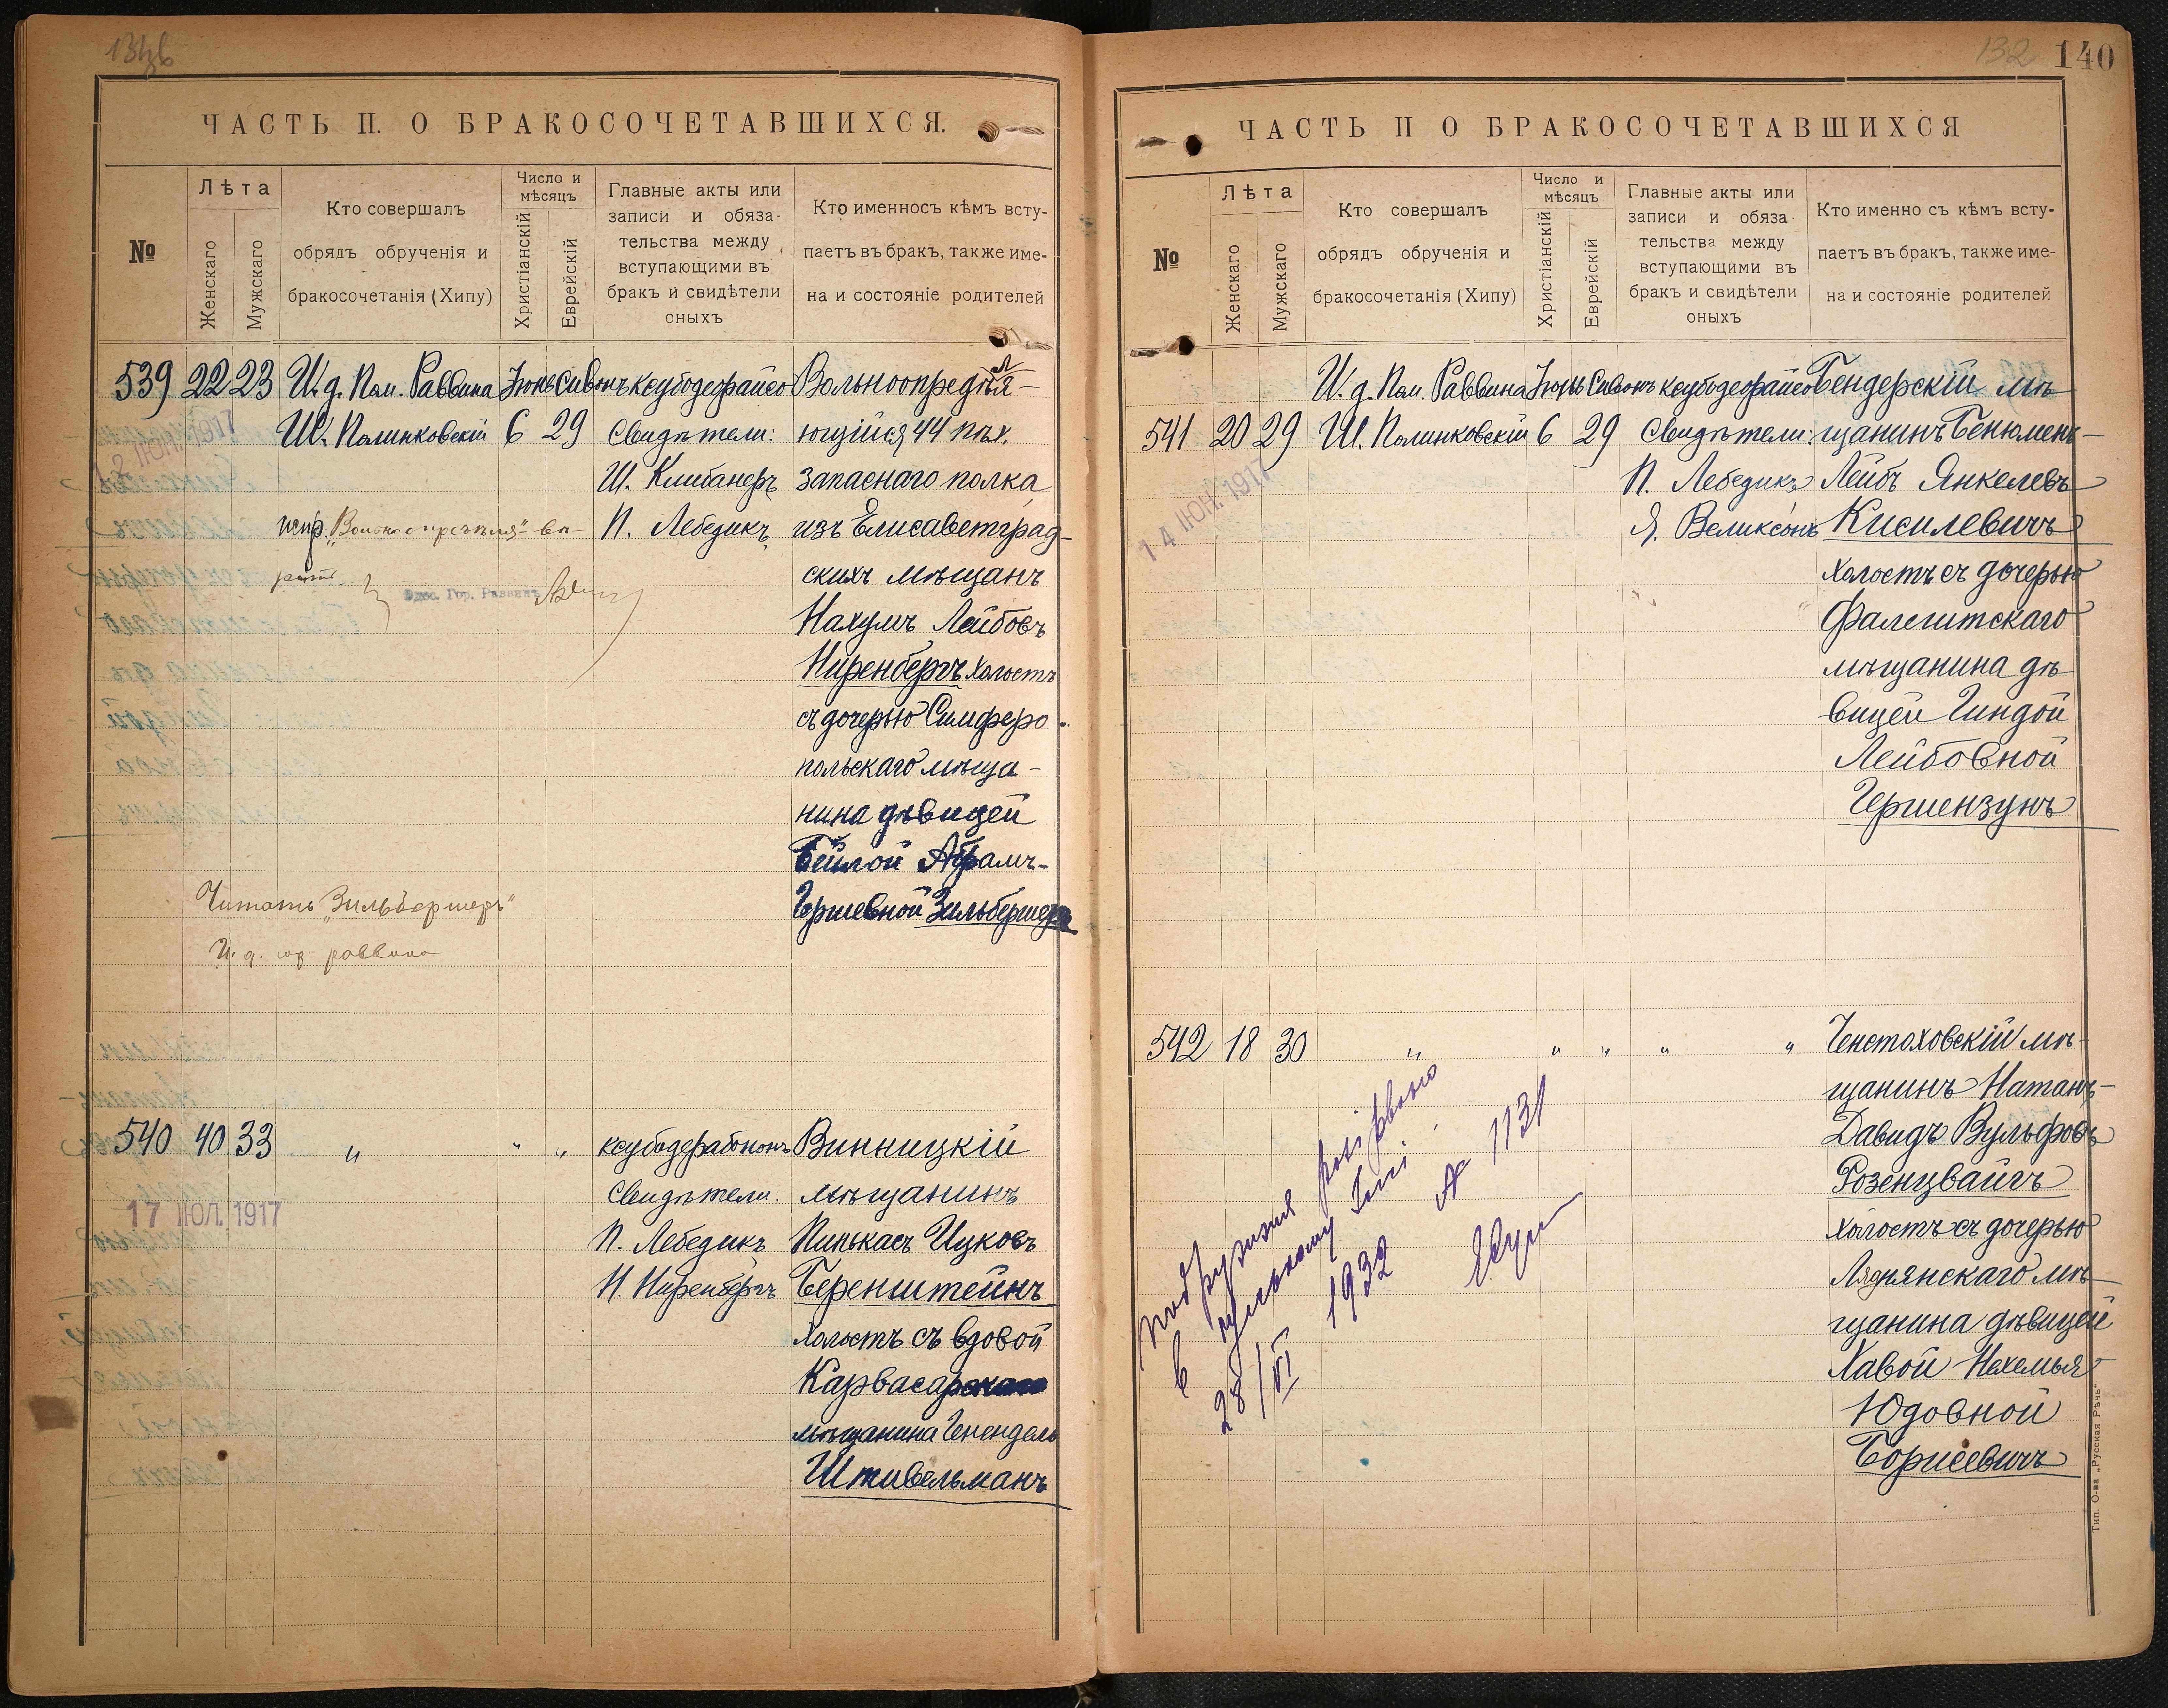 140
132
ЧАСТЬ II. О БРАКОСОЧЕТАВШИХСЯ.
№
Лѣта
Женскаго
Мужскаго
Кто совершалъ
обрядъ обрученія и
бракосочетанія (Хипу)
Число и
мѣсяцъ
Христіанскій
Еврейскій
Главные акты или
записи и обяза-
тельства между
вступающими въ
бракъ и свидѣтели
оныхъ
Кто именно съ кѣмъ всту-
паетъ въ бракъ, также име-
на и состояніе родителей
539 22 23 И. д. Пом. Раввина Іюнь Сивонъ ксубодерайсо Вольноопредѣля-
Ш. Полинковскій 6 29 Свидѣтели: ющійся 44 пѣх.
Ш. Клибанеръ запаснаго полка
П. Лебедикъ изъ Елисаветград-
скихъ мѣщанъ
Одес. Гор. Раввинъ
Нахумъ Лейбовъ
Ниренбергъ холостъ
съ дочерью Симферо-
польскаго мѣща-
нина дѣвицей
Бейлой Абрамъ-
Гершевной Зильбершеръ
Читать „Зильбершеръ"
И. д. гор. раввина
540 40 33 " " " ксубодерабононъ Винницкій
Свидѣтели: мѣщанинъ
17 ІЮЛ. 1917
П. Лебедикъ Пинькасъ Ицковъ
Н. Ниренбергъ Беренштейнъ
холостъ съ вдовой
Карвасар
мѣщанина Генендель
Штивельманъ
ЧАСТЬ II О БРАКОСОЧЕТАВШИХСЯ
№
Лѣта
Женскаго
Мужскаго
Кто совершалъ
обрядъ обрученія и
бракосочетанія (Хипу)
Число и
мѣсяцъ
Христіанскій
Еврейскій
Главные акты или
записи и обяза-
тельства между
вступающими въ
бракъ и свидѣтели
оныхъ
Кто именно съ кѣмъ всту-
паетъ въ бракъ, также име-
на и состояніе родителей
И. д. Пом. Раввина Іюнь Сивонъ ксубодерайсо Бендерскій мѣ-
541 20 29 Ш. Полинковскій 6 29 Свидѣтели: щанинъ Бенюменъ-
14 ІЮН. 1917
П. Лебедикъ Лейбъ Янкелевъ
Я. Великсонъ Кисилевичъ
холостъ съ дочерью
Фалештскаго
мѣщанина дѣ-
вицей Гиндой
Лейбовной
Гершензунъ
542 18 30 " " " " " Ченстоховскій мѣ-
щанинъ Натанъ-
Давидъ Вульфовъ
Розенцвайгъ
холостъ съ дочерью
Ляднянскаго мѣ-
щанина дѣвицей
Хавой Нехемья-
Юдовной
Борисевичъ
28/VI 1932 № 1131
Тип. О-ва „Русская Рѣчь"